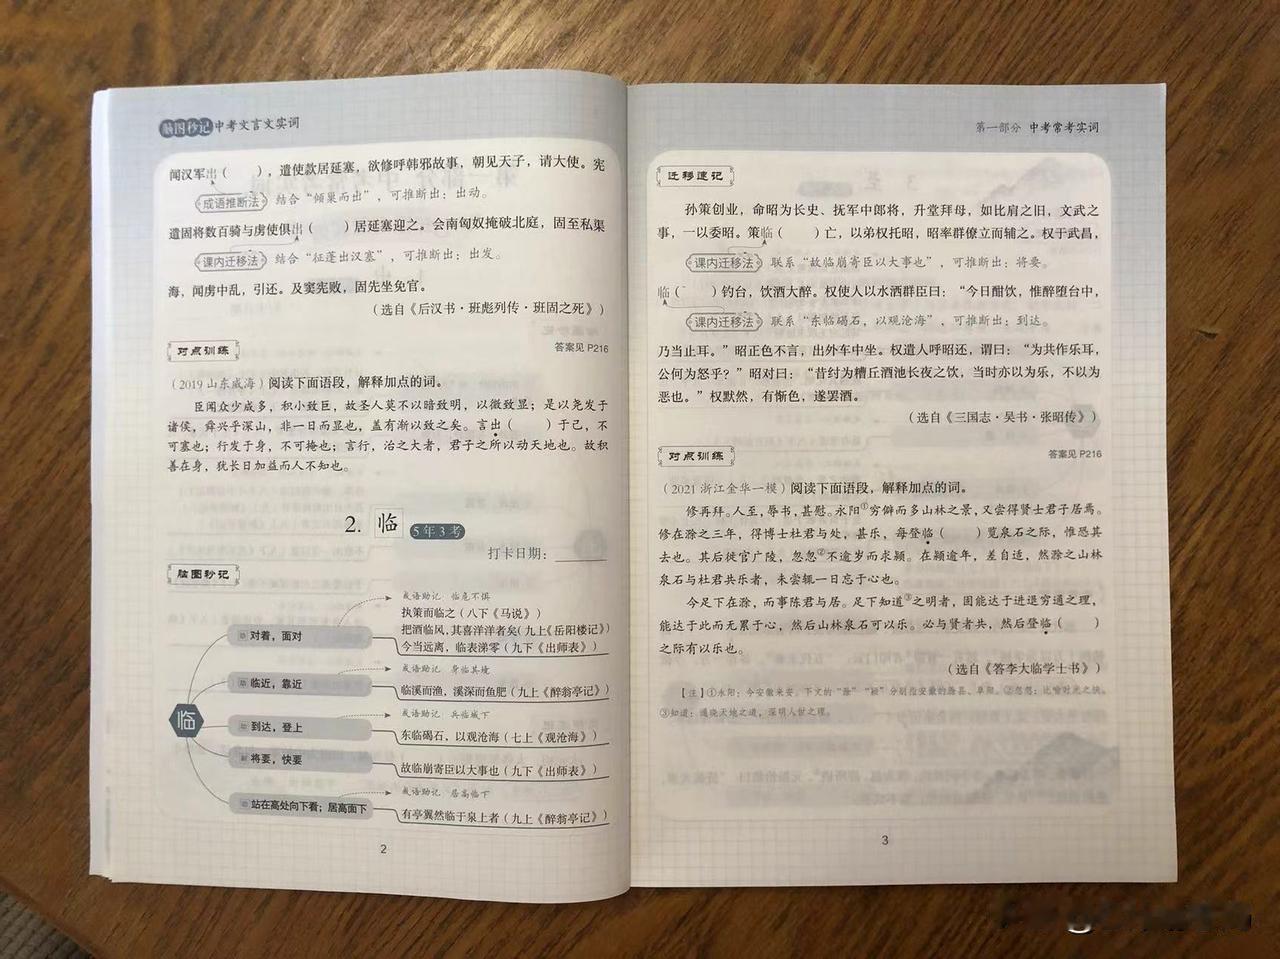 脑图秒记 中考文言文实词
闻汉军出（　　），遣使款居延塞，欲修呼韩邪故事，朝见天子，请大使。宪
成语推断法 结合“倾巢而出”，可推断出：出动。
遣固将数百骑与虏使俱出（　　）居延塞迎之。会南匈奴掩破北庭，固至私渠
课内迁移法 结合“征蓬出汉塞”，可推断出：出发。
海，闻虏中乱，引还。及窦宪败，固先坐免官。
（选自《后汉书·班彪列传·班固之死》）
对点训练 答案见 P216
（2019 山东威海）阅读下面语段，解释加点的词。
臣闻众少成多，积小致巨，故圣人莫不以暗致明，以微致显；是以尧发于
诸侯，舜兴乎深山，非一日而显也，盖有渐以致之矣。言出（　　）于己，不
可塞也；行发于身，不可掩也；言行，治之大者，君子之所以动天地也。故积
善在身，犹长日加益而人不知也。
2. 临 5年3考
打卡日期：
脑图秒记
临
成语助记 临危不惧
执策而临之（八下《马说》）
动 对着，面对
把酒临风，其喜洋洋者矣（九上《岳阳楼记》）
今当远离，临表涕零（九下《出师表》）
成语助记 身临其境
动 临近，靠近
临溪而渔，溪深而鱼肥（九上《醉翁亭记》）
成语助记 兵临城下
动 到达，登上
东临碣石，以观沧海（七上《观沧海》）
副 将要，快要
故临崩寄臣以大事也（九下《出师表》）
成语助记 居高临下
动 站在高处向下看；居高面下
有亭翼然临于泉上者（九上《醉翁亭记》）
2
第一部分 中考常考实词
迁移速记
孙策创业，命昭为长史、抚军中郎将，升堂拜母，如比肩之旧，文武之
事，一以委昭。策临（　　）亡，以弟权托昭，昭率群僚立而辅之。权于武昌，
课内迁移法 联系“故临崩寄臣以大事也”，可推断出：将要。
临（　　）钓台，饮酒大醉。权使人以水洒群臣曰：“今日酣饮，惟醉堕台中，
课内迁移法 联系“东临碣石，以观沧海”，可推断出：到达。
乃当止耳。”昭正色不言，出外车中坐。权遣人呼昭还，谓曰：“为共作乐耳，
公何为怒乎？”昭对曰：“昔纣为糟丘酒池长夜之饮，当时亦以为乐，不以为
恶也。”权默然，有惭色，遂罢酒。
（选自《三国志·吴书·张昭传》）
对点训练 答案见 P216
（2021 浙江金华一模）阅读下面语段，解释加点的词。
修再拜。人至，辱书，甚慰。永阳①穷僻而多山林之景，又尝得贤士君子居焉。
修在滁之三年，得博士杜君与处，甚乐，每登临（　　）览泉石之际，惟恐其
去也。其后徙官广陵，忽忽②不逾岁而求颍。在颍逾年，差自适，然滁之山林
泉石与杜君共乐者，未尝辄一日忘于心也。
今足下在滁，而事陈君与居。足下知道③之明者，固能达于进退穷通之理，
能达于此而无累于心，然后山林泉石可以乐。必与贤者共，然后登临（　　）
之际有以乐也。
（选自《答李大临学士书》）
【注】①永阳：今安徽来安。下文的“滁”“颍”分别指安徽的滁县、阜阳。②忽忽：比喻时光之快。
③知道：通晓天地之道，深明人世之理。
3